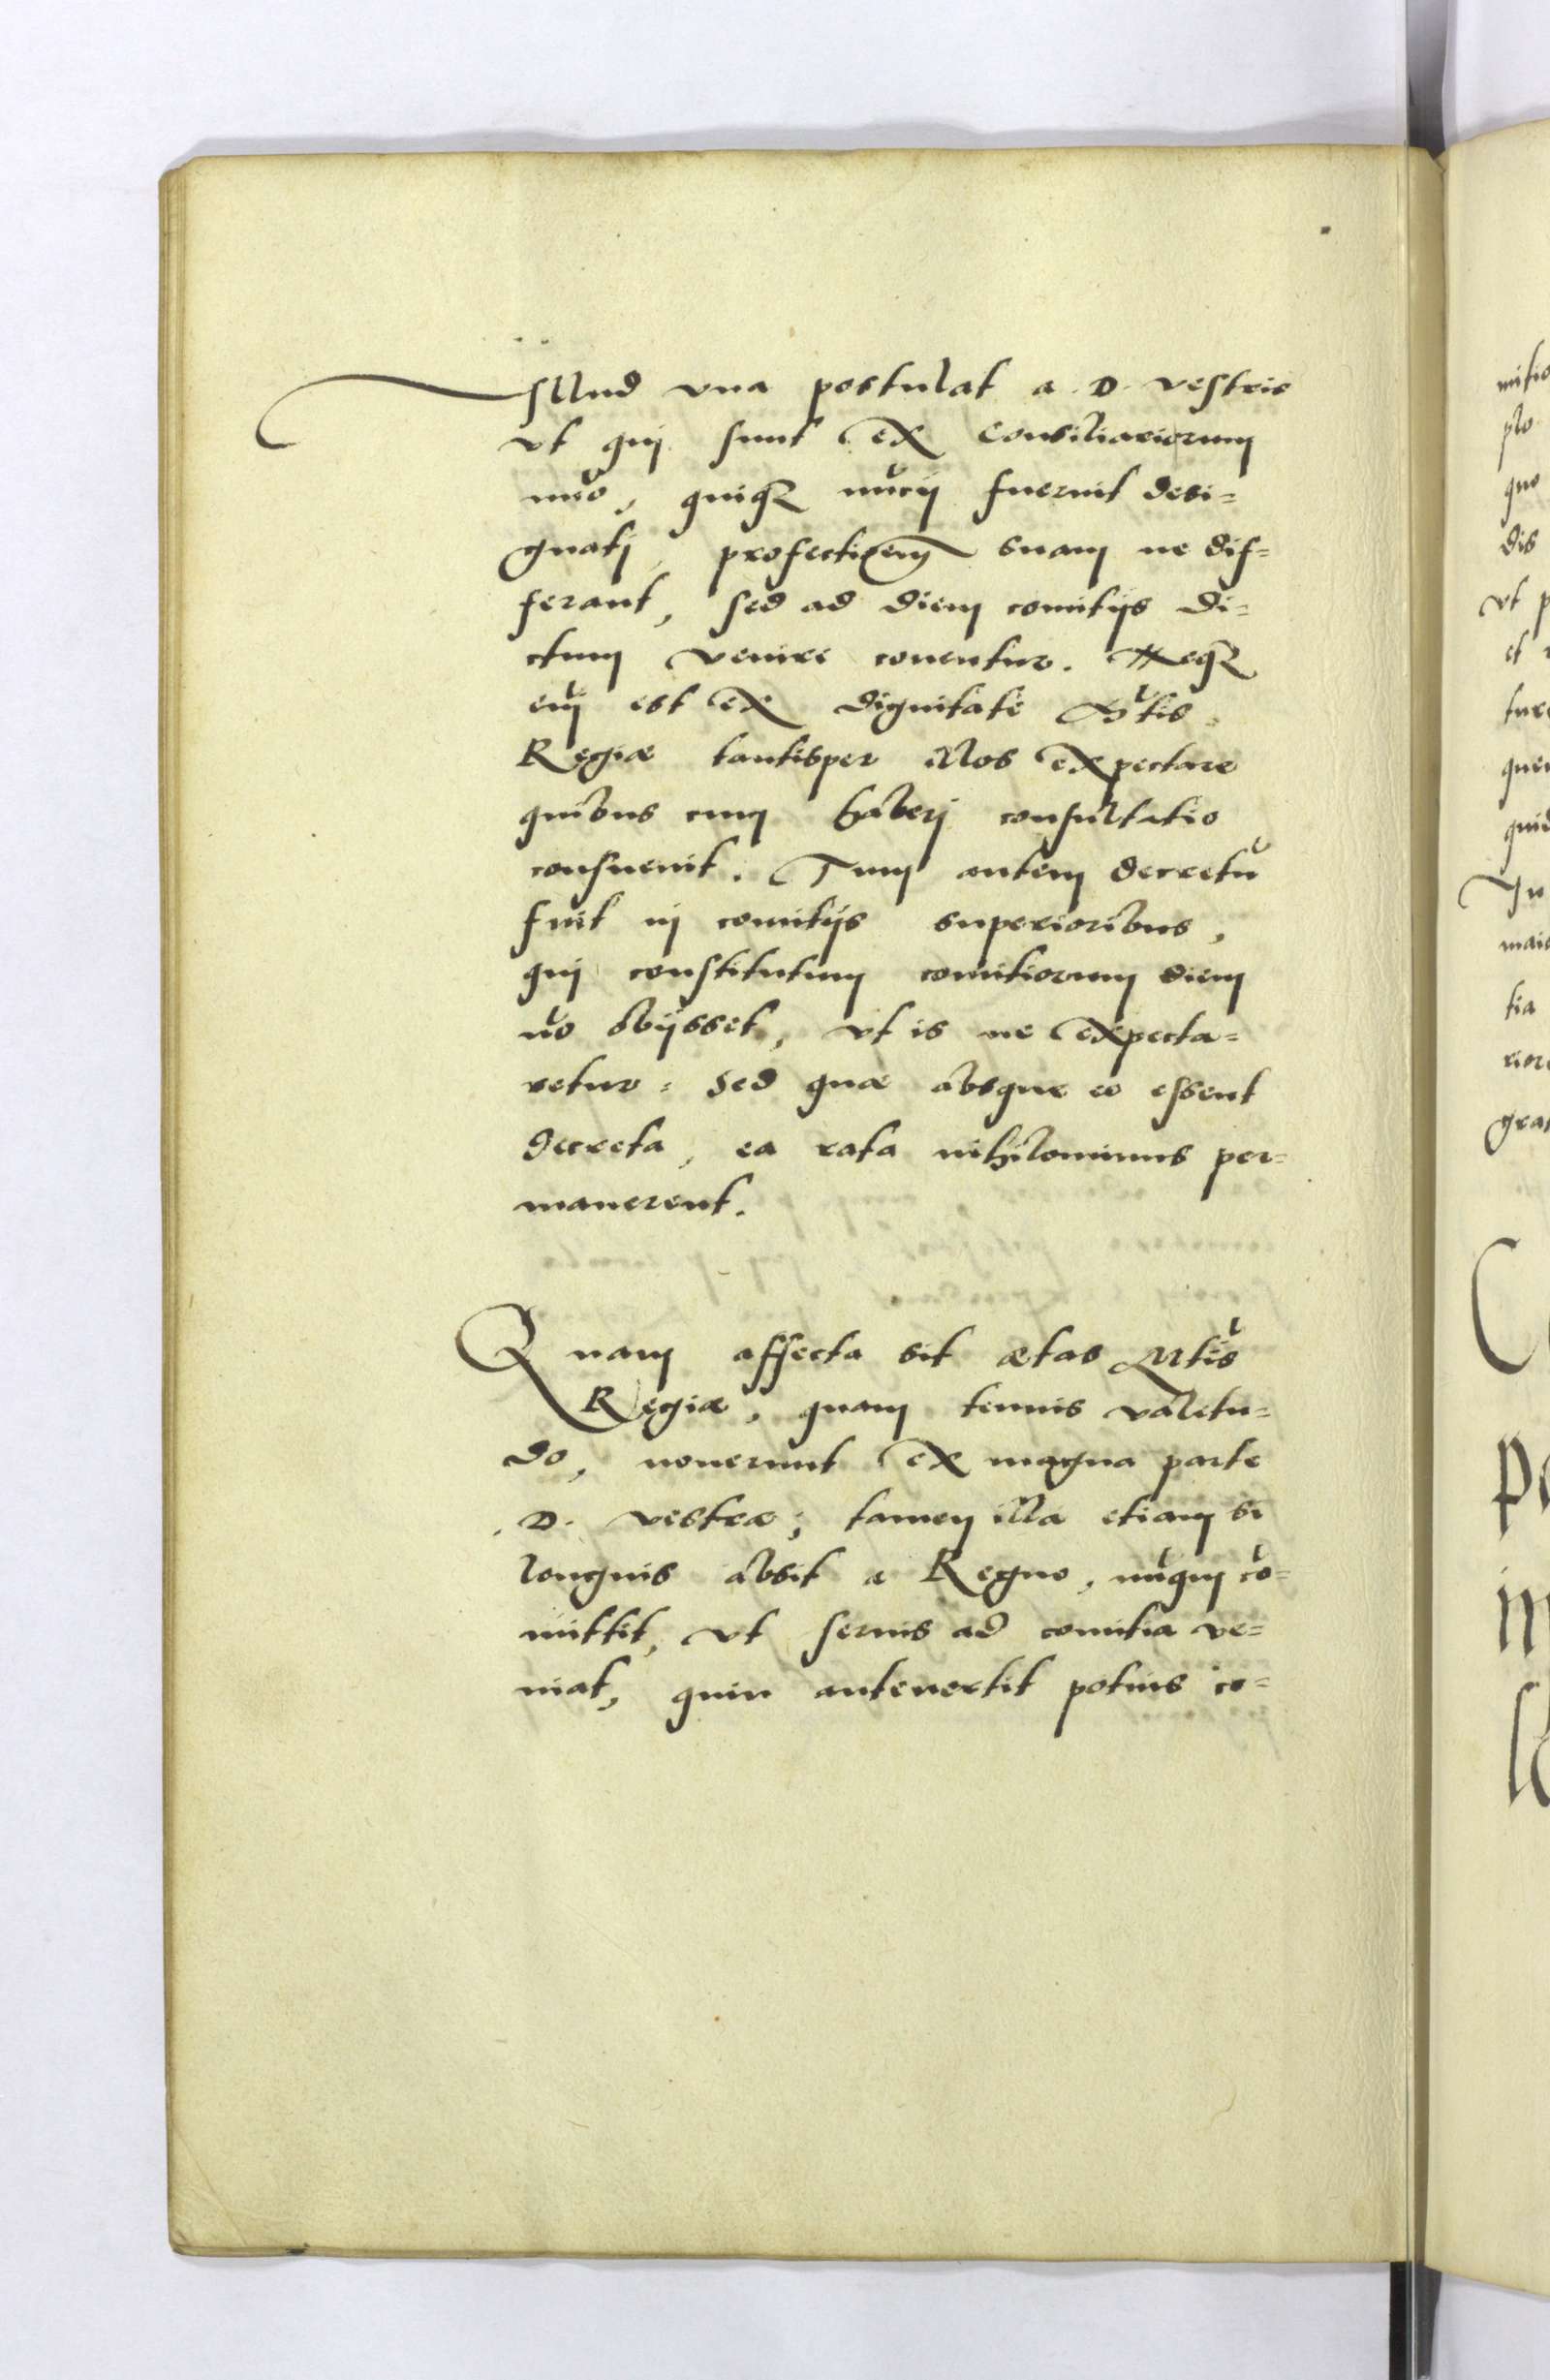 Illud vna postulat a D. vestris
vt qui sunt ex Consiliariorum
nūo, quiqꝫ nūcij fuerint desi=
gnati, profectionem suam ne dif=
ferant, sed ad diem comitijs di=
ctum venire conentur. Neqꝫ
eni est ex dignitate Mtis
Regiæ tantisper illos expectare
quibus cum haberi consultatio
consuevit. Tum autem decretū
fuit in comitijs superioribus,
qui constitutum comitiorum diem
nō obijsset, vt is ne expecta=
retur: Sed quæ absque eo essent
decreta, ea rata nihilominus per=
manerent.
Quam affecta sit ætas Mtis
Regiæ, quam tenuis valetu=
do, nouerunt ex magna parte
D. vestræ; tamen illa etiam si
longius absit a Regno, nūqm cō=
mittit, vt serius ad comitia ve=
niat, quin antevertit potius co=
mitio
plo
quo
dis
vt p
et
ture
quem
quid
In
maio
tia
riore
gra